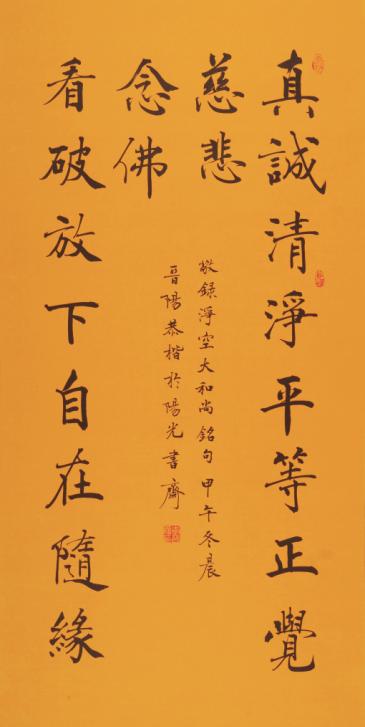 真誠清淨平等正覺
慈悲
看破放下自在隨緣
念佛
敬錄淨空大和尚銘句 甲午冬晨
晉陽恭楷於陽光書齋